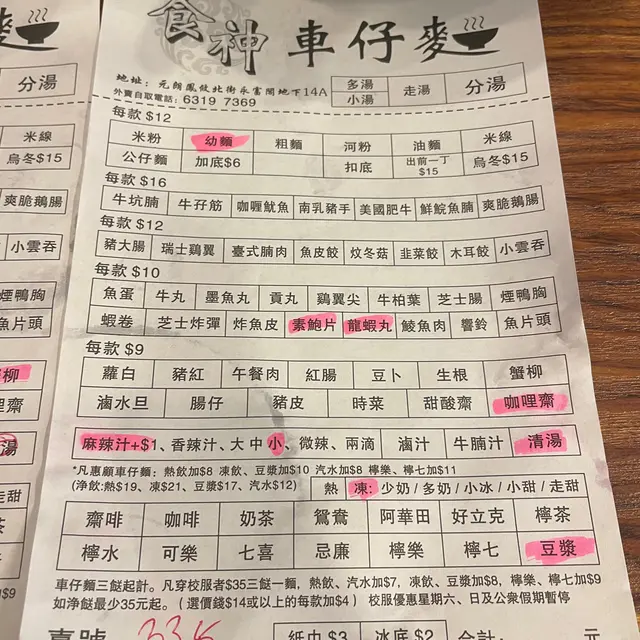 食神 車仔麥
地址：元朗鳳攸北街永富閣地下14A
外賣自取電話：6319 7369
多湯
小湯
走湯
分湯
每款 $12
米粉 幼麵 粗麵 河粉 油麵 米線
公仔麵 加底$6 扣底 出前一丁$15 烏冬$15
每款 $16
牛坑腩 牛孖筋 咖喱魷魚 南乳豬手 美國肥牛 鮮鯇魚腩 爽脆鵝腸
每款 $12
豬大腸 瑞士鷄翼 臺式腩肉 魚皮餃 炆冬菇 韭菜餃 木耳餃 小雲吞
每款 $10
魚蛋 牛丸 墨魚丸 貢丸 鷄翼尖 牛柏葉 芝士腸 煙鴨胸
蝦卷 芝士炸彈 炸魚皮 素鮑片 龍蝦丸 鯪魚肉 響鈴 魚片頭
每款 $9
蘿白 豬紅 午餐肉 紅腸 豆卜 生根 蟹柳
滷水旦 腸仔 豬皮 時菜 甜酸齋 咖哩齋
麻辣汁+$1、香辣汁、大 中 小、微辣、兩滴 滷汁 牛腩汁 清湯
*凡惠顧車仔麵：熱飲加$8 凍飲、豆漿加$10 汽水加$8 檸樂、檸七加$11
(淨飲:熱$19、凍$21、豆漿$17、汽水$12)
熱 凍:少奶/多奶/小冰/小甜/走甜
齋啡 咖啡 奶茶 鴛鴦 阿華田 好立克 檸茶
檸水 可樂 七喜 忌廉 檸樂 檸七 豆漿
車仔麵三餸起計。凡穿校服者$35三餸一麵，熱飲、汽水加$7，凍飲、豆漿加$8，檸樂、檸七加$9
如淨餸最少35元起。(選價錢$14或以上的每款加$4) 校服優惠星期六、日及公衆假期暫停
紙巾 $3 冰底 $2 合計: 元
分湯
米線
烏冬$15
爽脆鵝腸
小雲吞
煙鴨胸
魚片頭
蟹柳
哩齋
湯
走甜
茶
漿
$9